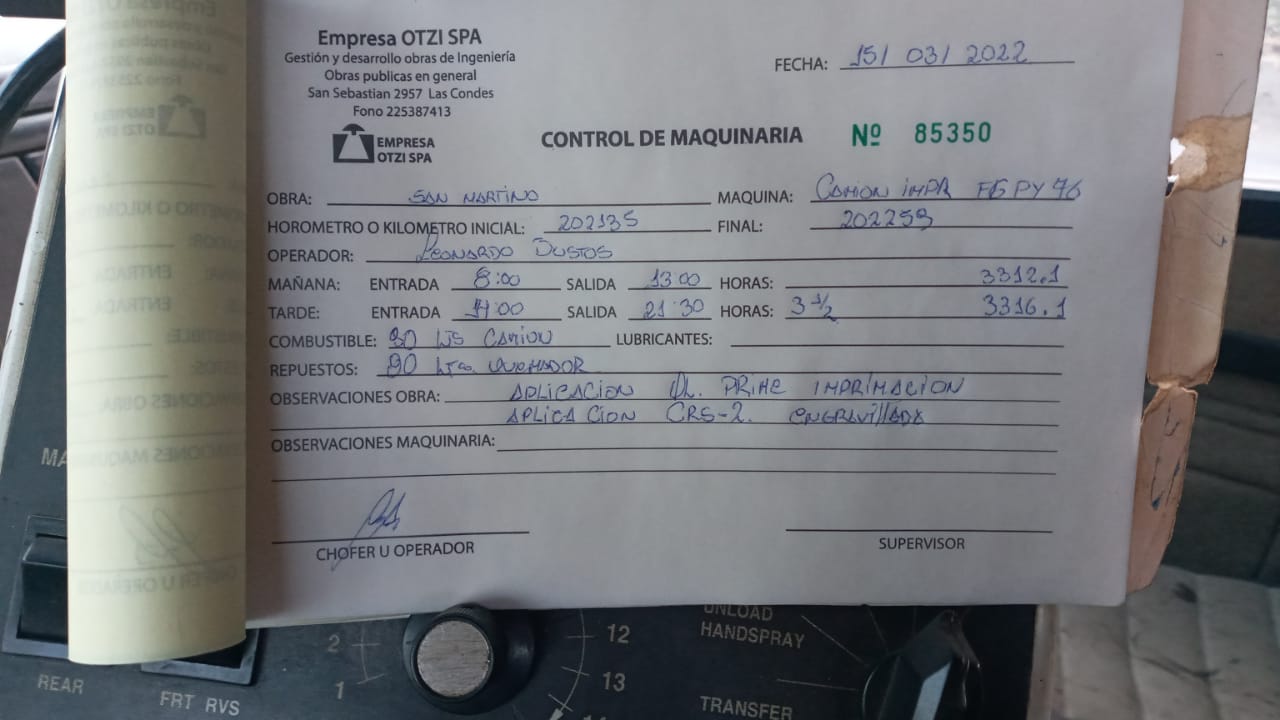 Empresa OTZI SPA
Gestión y desarrollo obras de Ingeniería
Obras publicas en general
San Sebastian 2957 Las Condes
Fono 225387413
EMPRESA
OTZI SPA
FECHA: 15/ 03/ 2022
CONTROL DE MAQUINARIA Nº 85350
OBRA: SAN MARTINO MAQUINA: CAMION IMPR FGPY 76
HOROMETRO O KILOMETRO INICIAL: 202135 FINAL: 202259
OPERADOR: LEONARDO BUSTOS
MAÑANA: ENTRADA 8:00 SALIDA 13:00 HORAS: 3312.1
TARDE: ENTRADA 14:00 SALIDA 21:30 HORAS: 3 1/2 3316.1
COMBUSTIBLE: LTS CAMION LUBRICANTES:
REPUESTOS: LTS QUEMADOR
OBSERVACIONES OBRA: APLICACION PRIME IMPRIMACION
APLICACION CRS-2. ENGRAVILLADA
OBSERVACIONES MAQUINARIA:
CHOFER U OPERADOR
SUPERVISOR
REAR
FRT RVS
2
1
12
13
UNLOAD
HANDSPRAY
TRANSFER